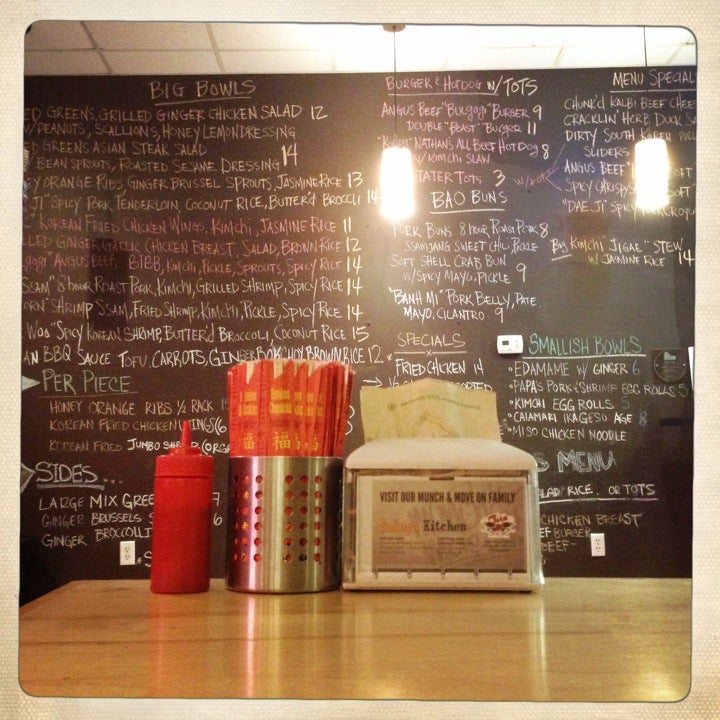 BIG BOWLS
GREENS, GRILLED GINGER CHICKEN SALAD 12
W/PEANUTS, SCALLIONS, HONEY LEMON DRESSING
GREENS ASIAN STEAK SALAD
BEAN SPROUTS, ROASTED SESAME DRESSING 14
ORANGE RIBS, GINGER BRUSSEL SPROUTS, JASMINE RICE 13
SPICY PORK TENDERLOIN, COCONUT RICE, BUTTER'D BROCCLI 14
KOREAN FRIED CHICKEN WINGS, KIMCHI, JASMINE RICE 11
GINGER GARLIC CHICKEN BREAST, SALAD, BROWN RICE 12
ANGUS BEEF, BIBB, KIMCHI, PICKLE, SPROUTS, SPICY RICE 14
SSAM" 8 HOUR ROAST PORK, KIMCHI, GRILLED SHRIMP, SPICY RICE 14
SHRIMP SSAM, FRIED SHRIMP, KIMCHI, PICKLE, SPICY RICE 14
WOO" SPICY KOREAN SHRIMP, BUTTER'D BROCCOLI, COCONUT RICE 15
BBQ SAUCE TOFU, CARROTS, GINGER BOK CHOY BROWN RICE 12
PER PIECE
HONEY ORANGE RIBS ½ RACK
KOREAN FRIED CHICKEN WINGS (6
KOREAN FRIED JUMBO
SIDES...
LARGE MIX GREE 7
GINGER BRUSSELS S 6
GINGER BROCCOLI
BURGER & HOTDOG W/TOTS
ANGUS BEEF "BULGOGI" BURGER 9
DOUBLE "BEAST" BURGER 11
NATHAN'S ALL BEEF HOT DOG 8
W/KIMCHI SLAW
TATER TOTS 3
BAO BUNS
PORK BUNS 8 HOUR ROAST PORK 8
SAMJANG SWEET CHIC. PICKLE
SOFT SHELL CRAB BUN
W/SPICY MAYO, PICKLE 9
"BANH MI" PORK BELLY, PATE
MAYO, CILANTRO 9
SPECIALS
FRIED CHICKEN 14
MENU SPECIAL
CHUNK'D KALBI BEEF CHEE
CRACKLIN' HERB DUCK SA
DIRTY SOUTH KOREN
SLIDERS
ANGUS BEEF
SPICY CRISPY SOFT
"DAE JI" SPICY PORK
BIG KIMCHI "JIGAE" STEW
W/ JASMINE RICE 14
SMALLISH BOWLS
• EDAMAME W/ GINGER 6
• PAPA'S PORK & SHRIMP EGG ROLLS 5
• KIMCHI EGG ROLLS 5
• CALAMARI IKAGESO AGE 8
• MISO CHICKEN NOODLE
MENU
RICE, OR TOTS
CHICKEN BREAST
BEEF BURGER
BEEF
VISIT OUR MUNCH & MOVE ON FAMILY
Kitchen
福
福